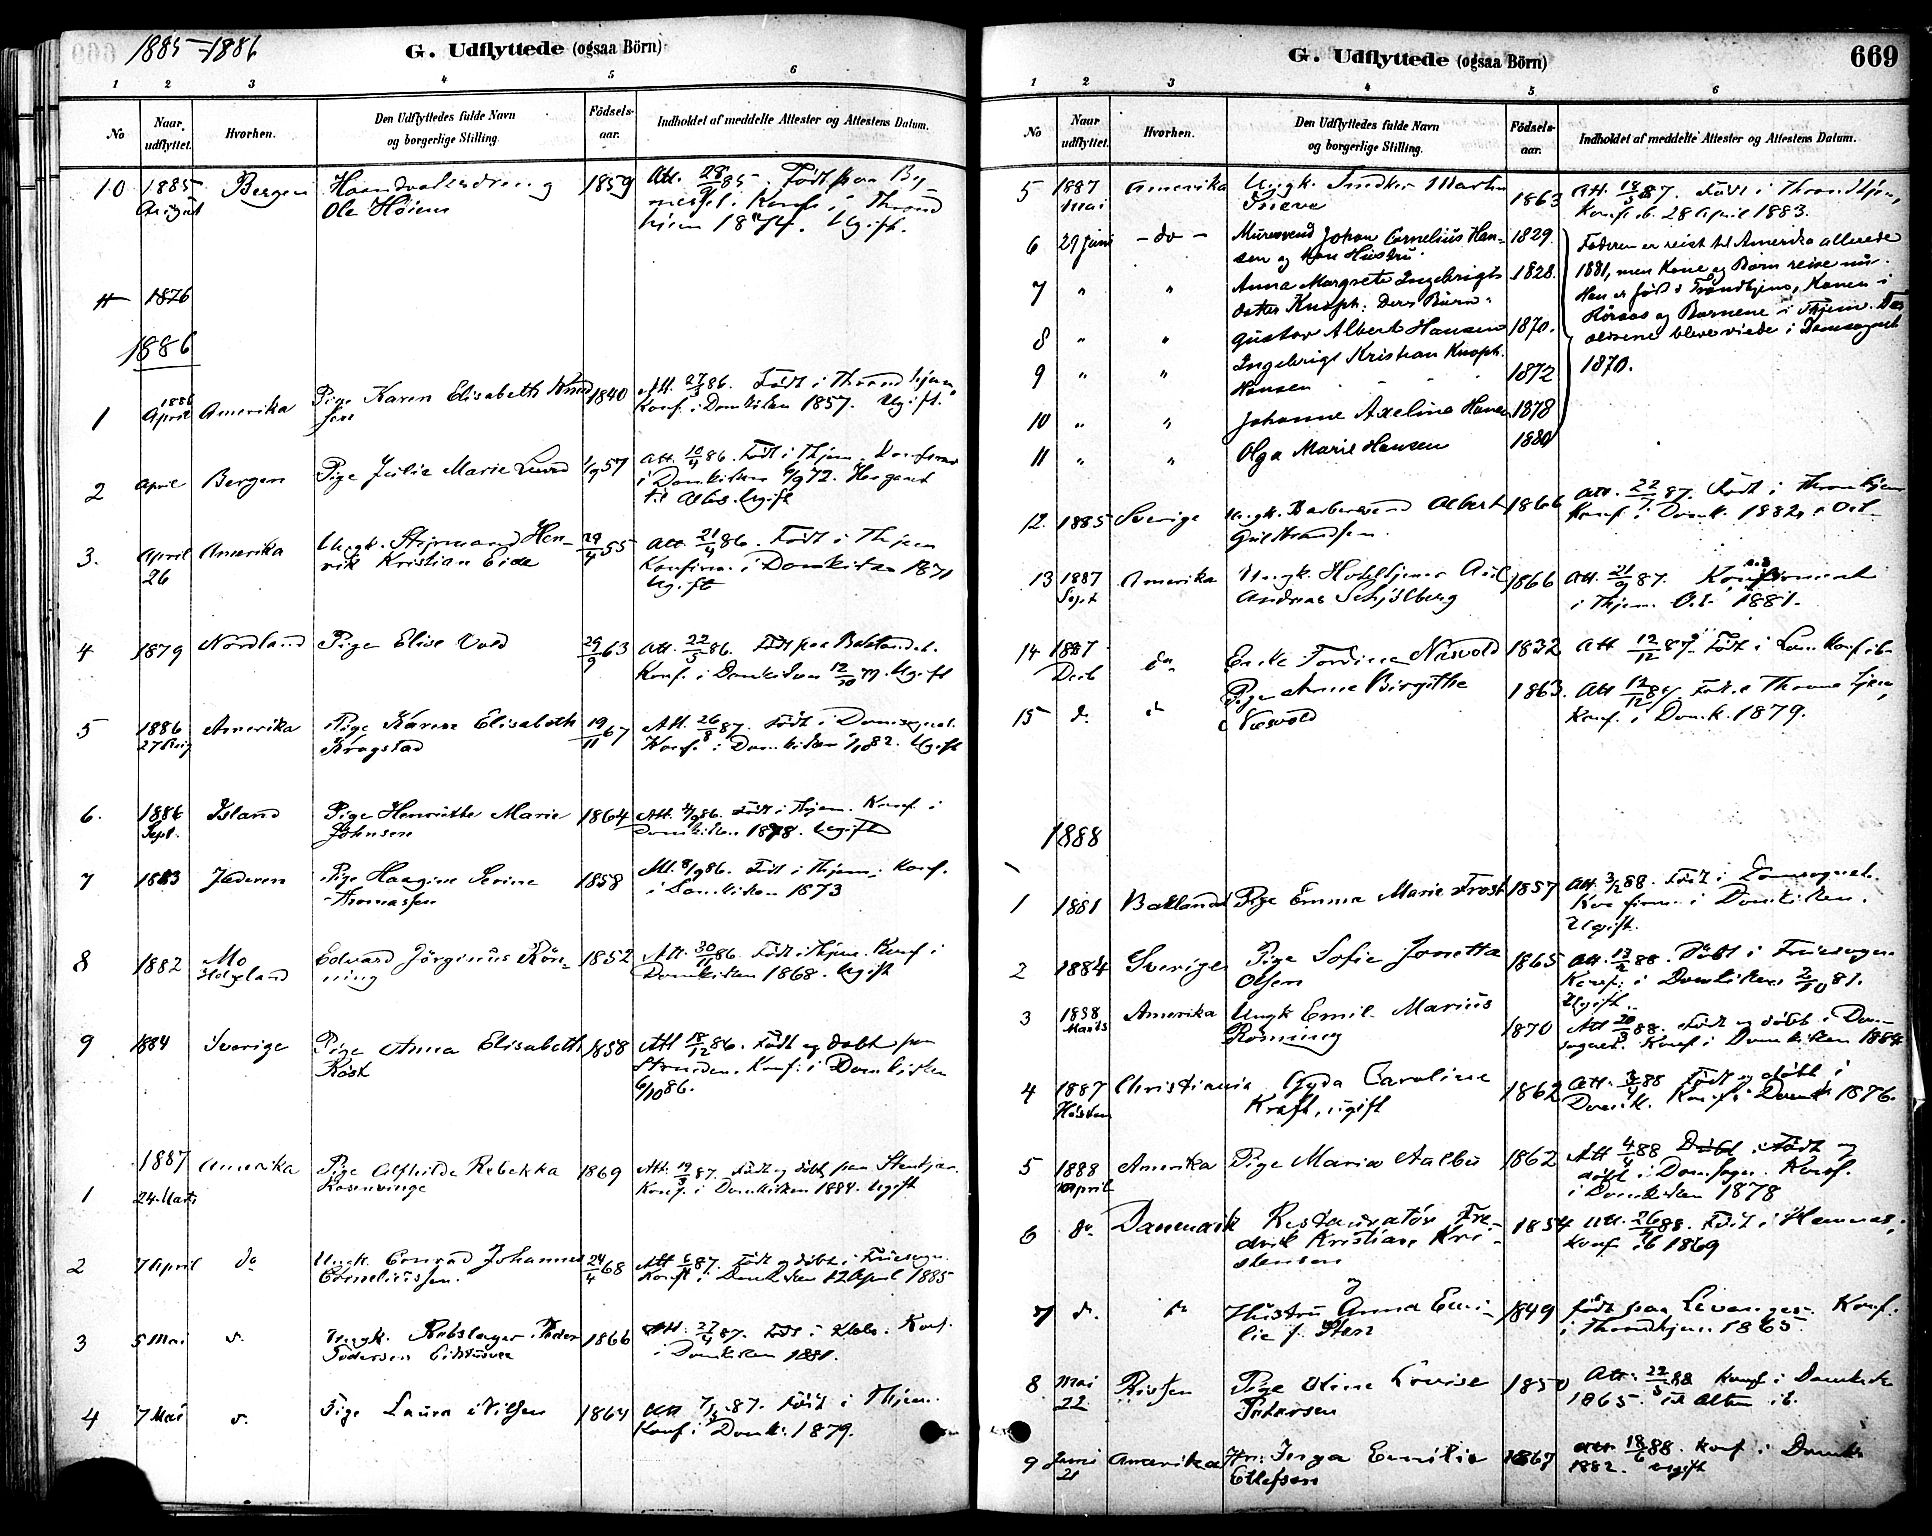 1885-1886
G. Udflyttede (ogsaa Börn)
1 2 3 4 5 6
No
Naar udflyttet.
Hvorhen.
Den Udflyttedes fulde Navn og borgerlige Stilling.
Födsels-aar.
Indholdet af meddelte Attester og Attestens Datum.
10 1885 Bergen 1859 Att. 28/9 85. Födt paa By-
August Ole Höiem Konf. i Thrond
hjem 1874. Ugift.
1876
1886
1 1886 April Amerika Pige Karen Elisabeth 1840 Att. 27/3 86. Födt i Throndhjem,
Konf. i Domkirken 1857. Ugift.
2 April Bergen Pige Julie Marie Lund 1/9 57 Att. 10/4 86. Födt i Thjem.
i Domkirken 72.
til Ugift
3. April Amerika Ungk. Styrmand Hen- 29/4 55 Att. 21/4 86. Födt i Thjem
26 rik Kristian Eide Konfirm. i Domkirken 1871
Ugift
4 1879 Nordland Pige Elise Vold 29/9 63 Att. 22/5 86. Födt paa Baklandet.
Konf. i Domkirken 12/10 79. Ugift
5 1886 Amerika Pige Karen Elisabeth 19/11 67 Att. 26/8 87. Födt i Domsognet.
27 Aug Krogstad Konf. i Domkirken 1/10 82. Ugift
6. 1886 Island Pige Henriette Marie 1864 Att. 4/9 86. Födt i Thjem. Konf. i
Sept. Johnsen Domkirken 1878. Ugift
7 1883 Jæderen Pige Haagine Serine 1858 Att. 8/9 86. Födt i Thjem. Konf.
Thomassen i Domkirken 1873
8 1882 Mo Edvard Jörginus Rön- 1852 Att. 30/11 86. Födt i Thjem. Konf. i
Helgeland ning Domkirken 1868. Ugift
9 1884 Sverige Pige Anna Elisabeth 1858 Att 18/12 86. Födt og döbt paa
Röst Stranden. Konf. i Domkirken
6/10 86.
1887 Amerika Pige Alfhilde Rebekka 1869 Att. 19/3 87. Födt og döbt paa Stenkjær.
1 24. Marts Rosenvinge Konf. i Domkirken 1884. Ugift
2 7 April do Ungk. Conrad Johannes 24/4 68 Att 6/4 87. Födt og döbt i Fruesogn.
Corneliussen. Konf. i Domkirken 12 April 1885
3 5 Mai d. Ungk. Rebslager Peder 1866 Att. 27/4 87. Födt i Klæbo. Konf.
i Domkirken 1881.
4 7 Mai d. Pige Laura Nilsen 1864 Att 7/5 87. Födt i Thjem.
Konf. i Domk. 1879.
G. Udflyttede (ogsaa Börn)
669
1 2 3 4 5 6
No
Naar udflyttet.
Hvorhen.
Den Udflyttedes fulde Navn og borgerlige Stilling.
Födsels-aar.
Indholdet af meddelte Attester og Attestens Datum.
5 1887 Amerika Ungk. Snedker Martin 1863 Att. 18/5 87. Födt i Throndhjem,
Mai Konf. ib. 28 April 1883.
6 29 Juni - do - Mursvend Johan Cornelius Han- 1829. Faderen er reist til Amerika allerede
sen og hans Hustru 1881, men Kone og Börn reise nu.
7 " " Anna Margrete Ingebrigts 1828. Han er född i Trondhjem, Konen i
datter Knoph. Deres Börn: og Börnene i Thjem.
8 " " Gustav Albert Hansen 1870. bleve viede i Domsognet
9 " " Ingebrigt Kristian Knoph 1872 1870.
Hansen
10 " " Johanne Axeline Hansen 1878
11 " " Olga Marie Hansen 1880
12. 1885 Sverige Ungk. Barbersvend Albert 1866 Att. 22/7 87. Födt i Throndhjem
Gulbrandsen. Konf. i Domk. 1882
13 1887 Amerika Ungk. Hoteltjener Axel 1866 Att. 21/9 87. Konfirmeret
Sept Andreas Schjölberg i Thjem. Oct. 1881.
14 1887 do Næsvold 1832 Att 12/12 87. Födt i Konf. ib.
Decb
15 d. d Pige Anne Birgitte 1863. Att 12/12 87. Födt i Throndhjem,
Næsvold Konf. i Domk. 1879.
1888
1 1881 Baklandet Pige Emma Marie Frost 1857 Att. 3/2 88. Födt i Domsognet.
Konfirm. i Domkirken.
Ugift.
2 1884 Sverige Pige Sofie Jonetta 1865 Att. 12/2 88. Döbt i Fruesogn.
Olsen Konf. i Domkirken 2/10 81.
Ugift.
3 1888 Amerika Ungk Emil Marius 1870 Att 20/3 88. Födt og döbt i Dom-
Marts Rönning sognet. Konf. i Domkirken 1884
4 1887 Christiania Gyda Caroline 1862 Att. 3/4 88 Födt og döbt i
Hösten Kraft, ugift Domk. Konf. i Domk 1876.
5 1888 Amerika Pige Maria Aalbu 1862 Att 4/4 88 Döbt Födt og
April döbt i Domsogn. Konf.
i Domkirken 1878
6 do Danmark Restauratör Fre- 1854 Att. 26/4 88. Födt i Hamnes,
drik Kristian Kri- Konf. ib 1869
stensen
og
7 d. do Hustru Anna Emi- 1849 födt paa Levanger. Konf.
lie f. Sten i Throndhjem 1865.
8 Mai Pige Oline Lovise 1850 Att. 22/5 88 Konf. i Domkirke
22 Petersen 1865.
9 Juni Amerika Inga Emilie 1867 Att. 18/6 88. Konf. i Domk.
21 Ellefsen 1882. ugift